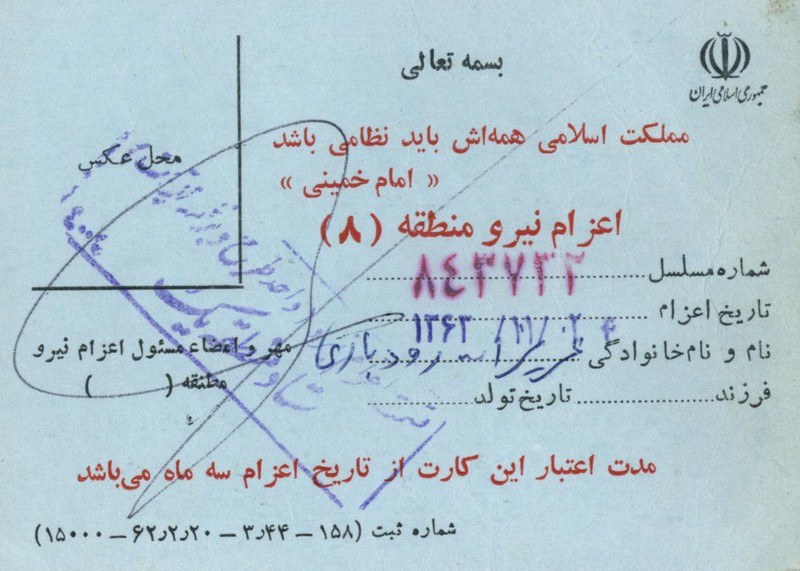 جمهوری اسلامی ایران
بسمه تعالی
مملکت اسلامی همه‌اش باید نظامی باشد
« امام خمینی »
اعزام نیرو منطقه (۸)
محل عکس
شماره مسلسل ۸۴۳۷۳۲
تاریخ اعزام ۱۳۶۳/۱۱/۰۲
نام و نام‌خانوادگی رودباری
فرزند تاریخ تولد
مهر و امضاء مسئول اعزام نیرو
مطنقه ( )
مدت اعتبار این کارت از تاریخ اعزام سه ماه می‌باشد
شماره ثبت (۱۵۸ – ۳٫۴۴ – ۶۲٫۲٫۲۰ – ۱۵۰۰۰)